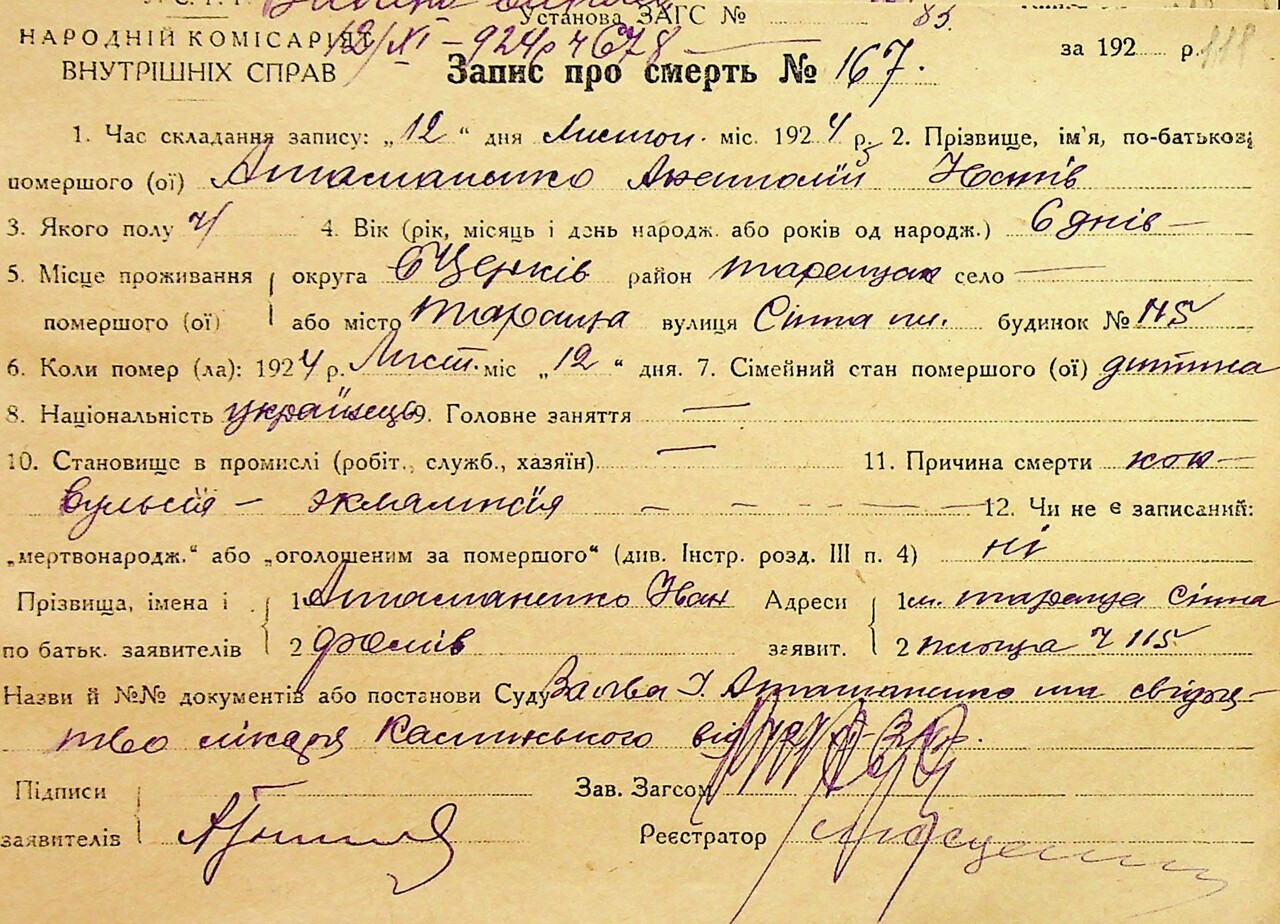 Установа ЗАГС № 85.
НАРОДНІЙ КОМІСАРІЯТ 12/XI – 924р ч 678
ВНУТРІШНІХ СПРАВ
за 192 р. 118
Запис про смерть № 167.
1. Час складання запису: „12“ дня Листоп. міс. 1924 р. 2. Прізвище, ім'я, по-батькові
помершого (ої) Атаманенко Анатолій
3. Якого полу ч/ 4. Вік (рік, місяць і день народж. або років од народж.) 6 днів –
5. Місце проживання округа БЦерків район таращан село —
помершого (ої) або місто Тараща вулиця Сінна пл. будинок № 115
6. Коли помер (ла): 1924 р. Лист. міс „12“ дня. 7. Сімейний стан помершого (ої) дитина
8. Національність українець 9. Головне заняття —
10. Становище в промислі (робіт., служб., хазяїн) — 11. Причина смерти кон-
вульсія – экмлямпсія – – – – — 12. Чи не є записаний:
„мертвонародж.“ або „оголошеним за помершого“ (див. Інстр. розд. III п. 4) ні
Прізвища, імена і 1 Атаманенко Іван Адреси 1 м. тараща Сінна
по батьк. заявителів 2 заявит. 2 площа ч 115
Назви й №№ документів або постанови Суду Заява І. Атаманенко та свідоц-
тво лікаря від
Підписи Зав. Загсом
заявителів Реєстратор